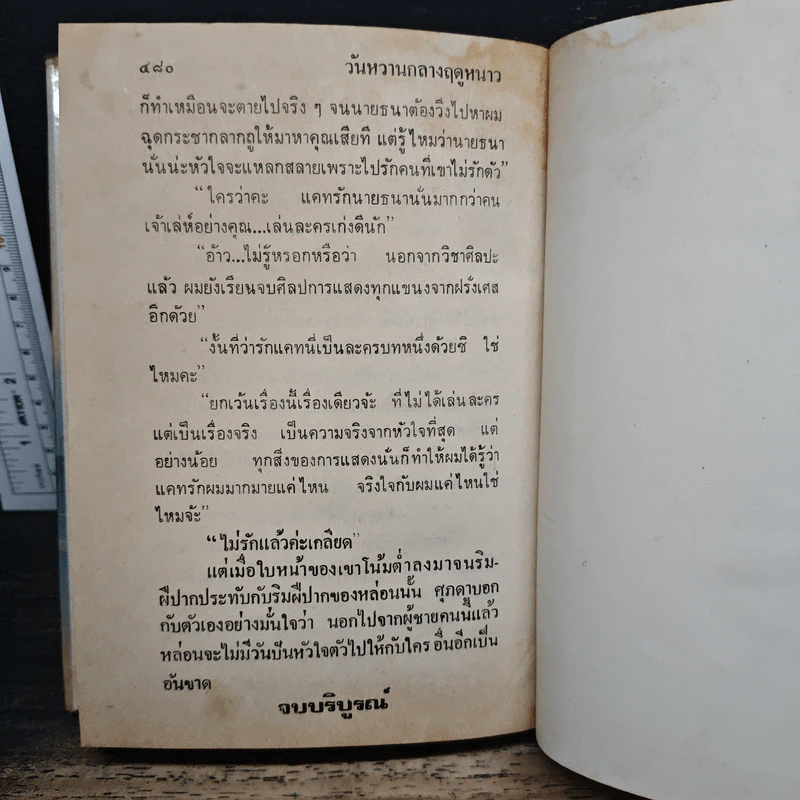 ๔๘๐ วันหวานกลางฤดูหนาว
ก็ทำเหมือนจะตายไปจริง ๆ จนนายธนาต้องวิ่งไปหาผม
ฉุดกระชากลากถูให้มาหาคุณเสียที แต่รู้ไหมว่านายธนา
นั่นน่ะหัวใจจะแหลกสลายเพราะไปรักคนที่เขาไม่รักตัว”
“ใครว่าคะ แคทรักนายธนานั่นมากกว่าคน
เจ้าเล่ห์อย่างคุณ...เล่นละครเก่งดีนัก”
“อ้าว...ไม่รู้หรอกหรือว่า นอกจากวิชาศิลปะ
แล้ว ผมยังเรียนจบศิลปการแสดงทุกแขนงจากฝรั่งเศส
อีกด้วย”
“งั้นที่ว่ารักแคทนี่เป็นละครบทหนึ่งด้วยซิ ใช่
ไหมคะ”
“ยกเว้นเรื่องนี้เรื่องเดียวจ้ะ ที่ไม่ได้เล่นละคร
แต่เป็นเรื่องจริง เป็นความจริงจากหัวใจที่สุด แต่
อย่างน้อย ทุกสิ่งของการแสดงนั่นก็ทำให้ผมได้รู้ว่า
แคทรักผมมากมายแค่ไหน จริงใจกับผมแค่ไหนใช่
ไหมจ้ะ”
“ไม่รักแล้วค่ะเกลียด”
แต่เมื่อใบหน้าของเขาโน้มต่ำลงมาจนริม-
ฝีปากประทับกับริมฝีปากของหล่อนนั้น ศุภดาบอก
กับตัวเองอย่างมั่นใจว่า นอกไปจากผู้ชายคนนี้แล้ว
หล่อนจะไม่มีวันปันหัวใจตัวไปให้กับใครอื่นอีกเป็น
อันขาด
จบบริบูรณ์